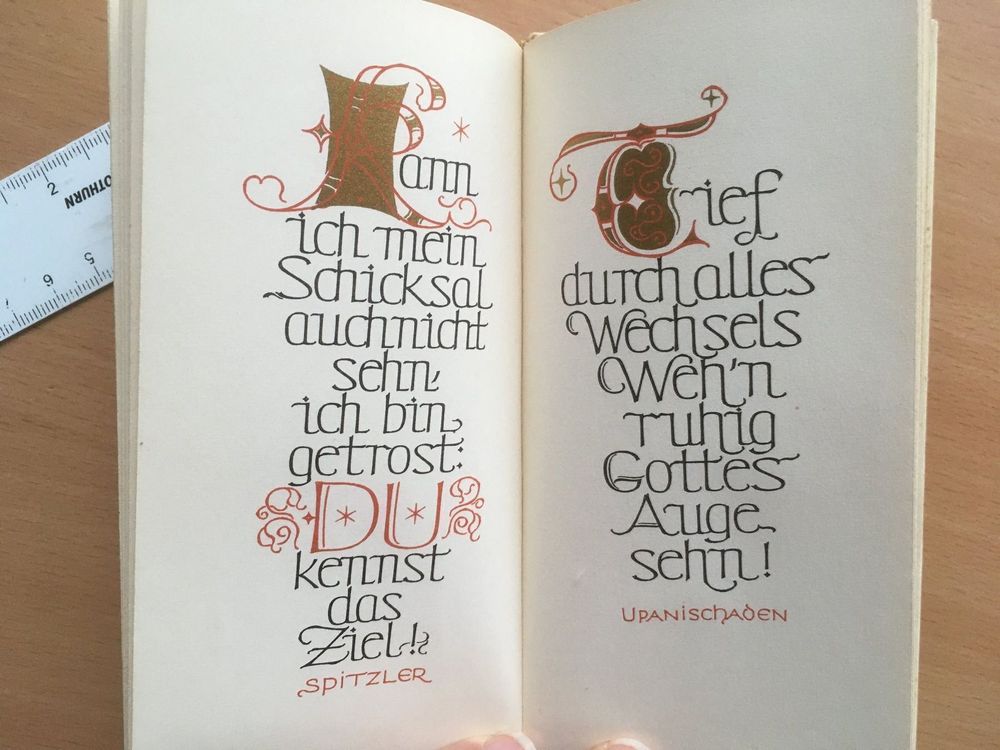 Kann
ich mein
Schicksal
auch nicht
sehn,
ich bin
getrost:
DU
kennst
das
Ziel!
SPITZLER
Tief
durch alles
Wechsels
Weh'n
ruhig
Gottes
Auge
sehn!
UPANISCHADEN
OTHURN
2
5
6